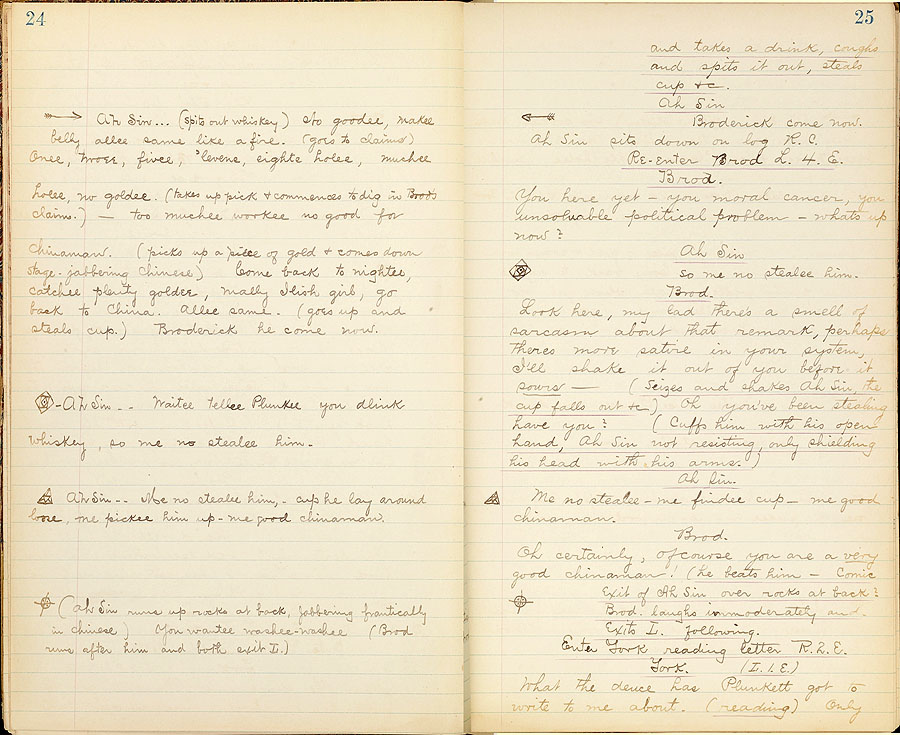 24
Ah Sin... (spits out whiskey) No goodee, makee
belly allee same like a fire. (goes to claims)
Onee, twoee, fivee, 'levene, eighte holee, muchee
holee, no goldee. (takes up pick & commences to dig in Brod's
claims.) — too muchee workee no good for
chinaman. (picks up a piece of gold & comes down
stage - jabbering Chinese) Come back to nightee,
catchee plenty goldee, mally Ilish girl, go
back to China. Allee same. (goes up and
steals cup.) Broderick he come now.
- Ah Sin -- Waitee tellee Plunkee you dlink
whiskey, so me no stealee him.
Ah Sin -- Me no stealee him, - cup he lay around
loose, me pickee him up - me good chinaman.
(Ah Sin runs up rocks at back, jabbering frantically
in chinese) You wantee washee-washee (Brod
runs after him and both exit L.)
25
and takes a drink, coughs
and spits it out, steals
cup &c.
Ah Sin
Broderick come now.
Ah Sin sits down on log R. C.
Re-enter Brod L. 4. E.
Brod.
You here yet - you moral cancer, you
unsolvable political problem - whats up
now?
Ah Sin
So me no stealee him.
Brod.
Look here, my lad there's a smell of
sarcasm about that remark, perhaps
theres more satire in your system,
I'll shake it out of you before it
sours — (Seizes and shakes Ah Sin, the
cup falls out &c) Oh you've been stealing
have you? (Cuffs him with his open
hand, Ah Sin not resisting, only shielding
his head with his arms.)
Ah Sin.
Me no stealee - me findee cup - me good
chinaman.
Brod.
Oh certainly, ofcourse you are a very
good chinaman! (he beats him - Comic
Exit of Ah Sin over rocks at back?
Brod. laughs immoderately and
Exits L. following.
Enter York reading letter R. 2. E.
York. (L. 1. E.)
What the deuce has Plunkett got to
write to me about. (reading) Only